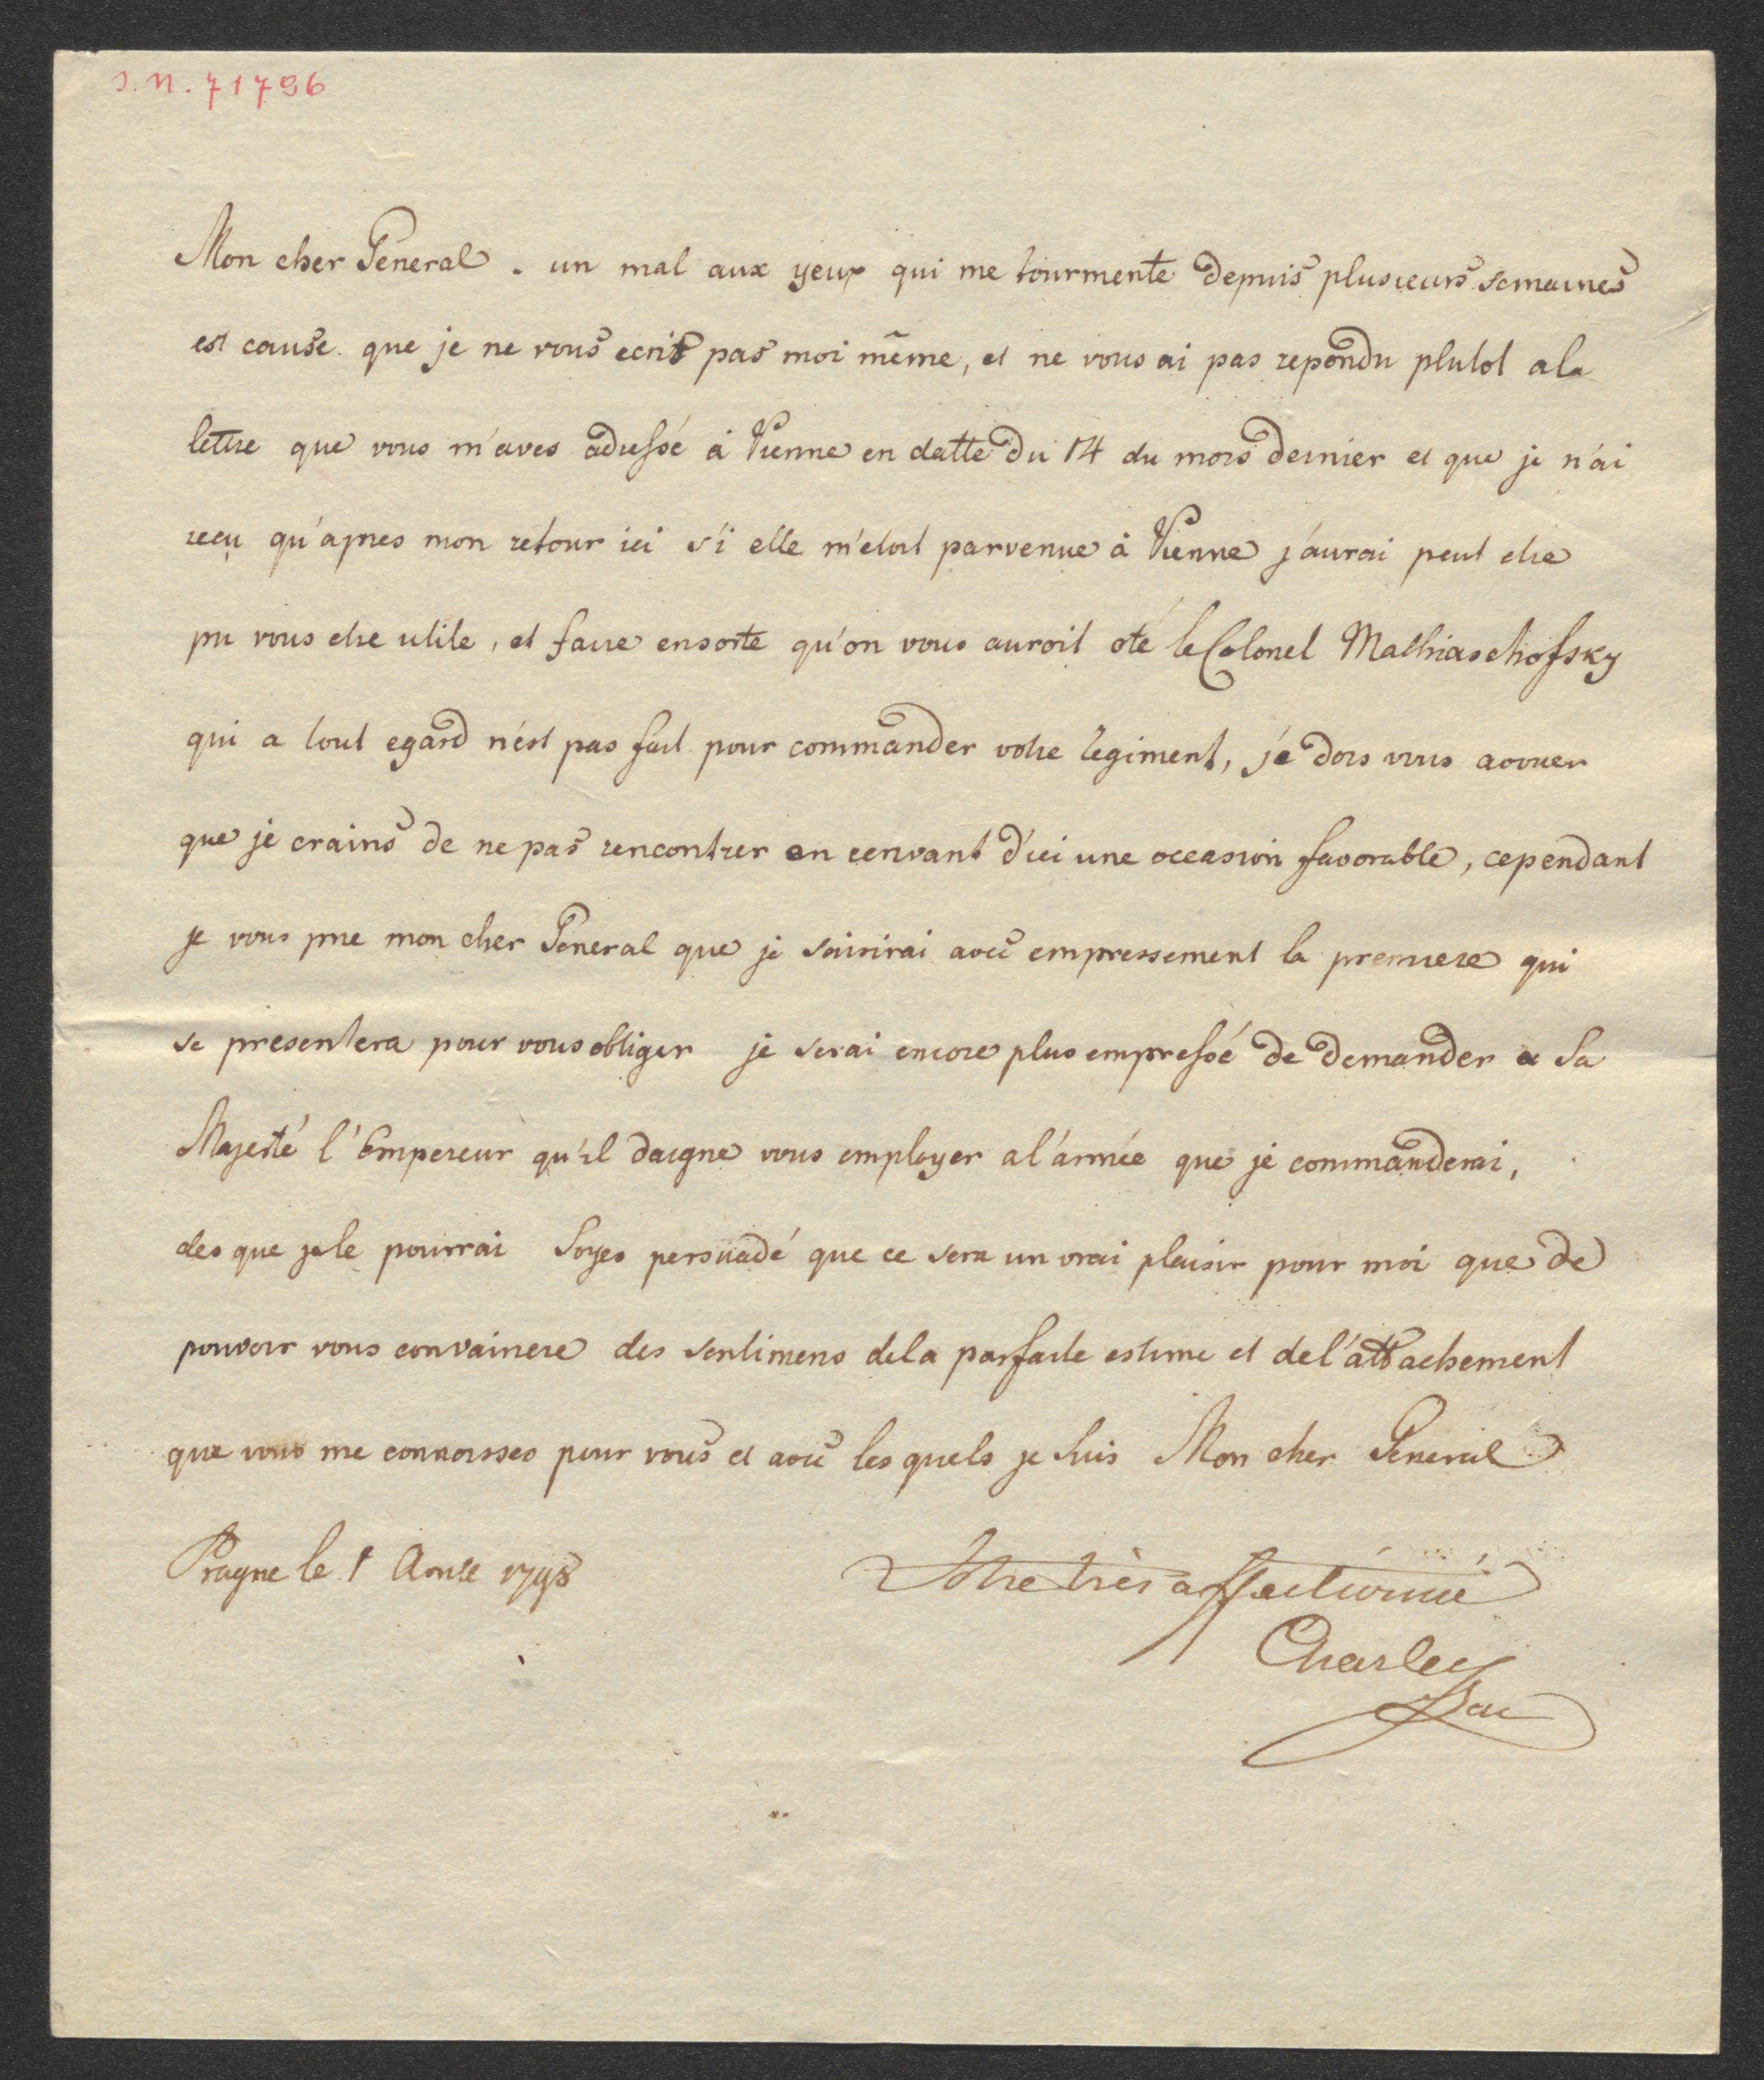 J.N. 71796
Mon cher General . un mal aux yeux qui me tourmente depuis plusieurs semaines
est cause que je ne vous ecris pas moi même, et ne vous ai pas repondu plutot a la
lettre que vous m'aves adressé à Vienne en datte du 14 du mois dernier et que je n'ai
reçu qu'apres mon retour ici s'i elle m'etoit parvenue à Vienne j'aurai peut etre
pu vous etre utile, et faire ensorte qu'on vous auroit oté le Colonel Mathiaschofsky
qui a tout egard n'est pas fait pour commander votre regiment, je dois vous avouer
que je crains de ne pas rencontrer en ecrivant d'ici une occasion favorable, cependant
je vous prie mon cher General que je saisirai avec empressement la premiere qui
se presentera pour vous obliger je serai encore plus empressé de demander a Sa
Majesté l'Empereur qu'il daigne vous employer a l'armée que je commanderai,
des que je le pourrai Soyes persuadé que ce sera un vrai plaisir pour moi que de
pouvoir vous convaincre des sentimens de la parfaite estime et de l'attachement
que vous me connoisses pour vous et avec les quels je suis Mon cher General
Prague le 1 1798
Votre très affectionné
Charles